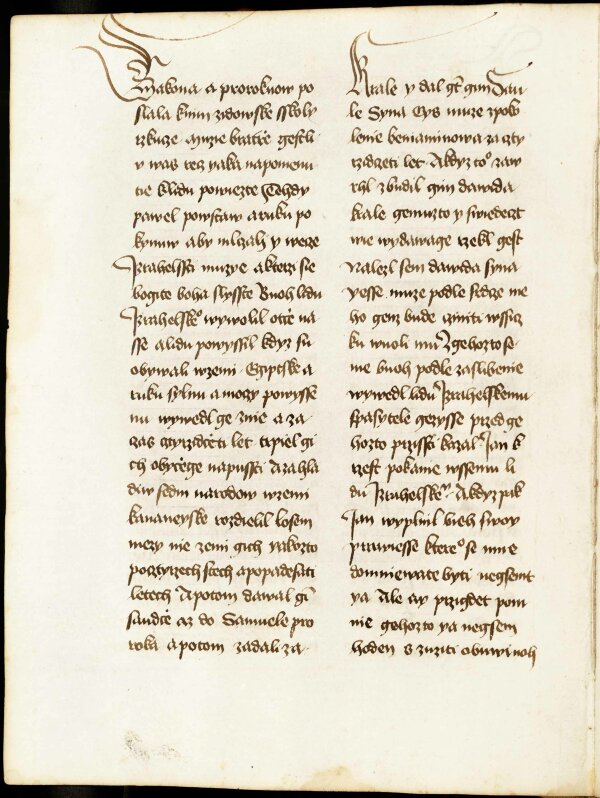 Zakona a prorokuow po
slala kniu zidowske sskoly
rzkuze Muzie bratrie gestli
v was rzecz yaka napomenu
tie k lidu powiezte Tehdy
pawel powstaw a ruku po
kynuw aby mlzaly y wece
Izrahelssti muzye a kterzi se
bogite boha slysste Buoh lidu
Izrahelskeo wywolil otce na
sse a lidu powyssil kdyz su
obywali w zemi Egiptske a
ruku sylnu a moczy powysse
nu wywedl ge z nie a za
czas cztyrzdceti let trpiel gi
ch obyczege na pussti A zahla
diw sedm narodow w zemi
kananeyske rozdielil losem
mezy nie zemi gich yakozto
po cztyrzech stech a popadesati
letech A potom dawal gim
saudce az do Samuele pro
roka a potom zadali za
Krale y dal gim buoh Sau
le Syna Cys muze z poko
lenie beniaminowa za czty
rzidczeti let A kdyz to zaw
rhl zbudil gim dawida
krale gemuzto y swiedecz
wie wydawage rzekl gest
Nalezl sem dawida syna
yesse muze podle srdce me
ho genz bude cziniti wssicz
ku wuoli mu Z gehozto se
me buoh podle zaslibenie
wywedl lidu Izrahelskemu
spasytele gezysse przed ge
hozto przissti kazal Jan k
rzest pokanie wssemu li
du Izrahelskeu A kdyz pak
Jan wyplnil bieh swoy
prawiesse ktereo se mne
domniewate byti negsemt
ya Ale ay przigdet po mu
nie gehozto ya negsem
hoden s zuziti obuwi noh